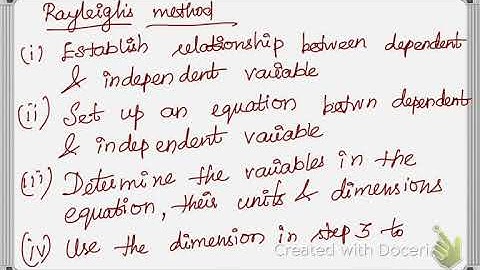 Rayleigh's method
(i) Establish relationship between dependent
& independent variable
(ii) Set up an equation betwn dependent
& independent variable
(iii) Determine the variables in the
equation, their units & dimensions
(iv) Use the dimension in step 3 to
Created with Doceri